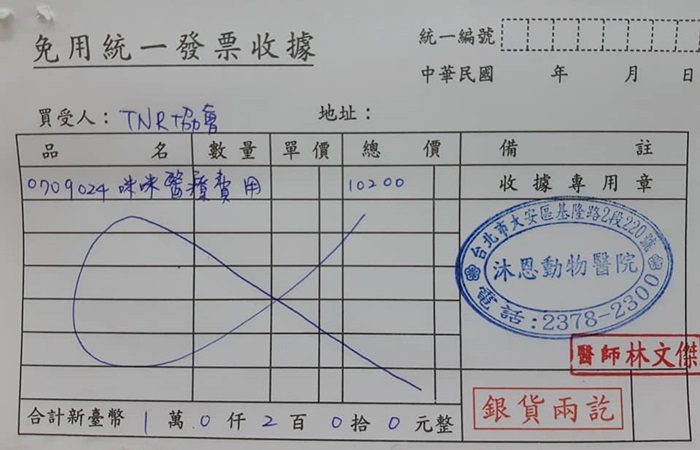 免用統一發票收據
統一編號
中華民國 年 月 日
買受人：TNR協會 地址：
品名 數量 單價 總價 備註
0709024 咪咪醫療費用 10200 收據專用章
台北市大安區基隆路2段220號
沐恩動物醫院
電話：2378-2300
醫師林文傑
銀貨兩訖
合計新臺幣 1 萬 0 仟 2 百 0 拾 0 元整